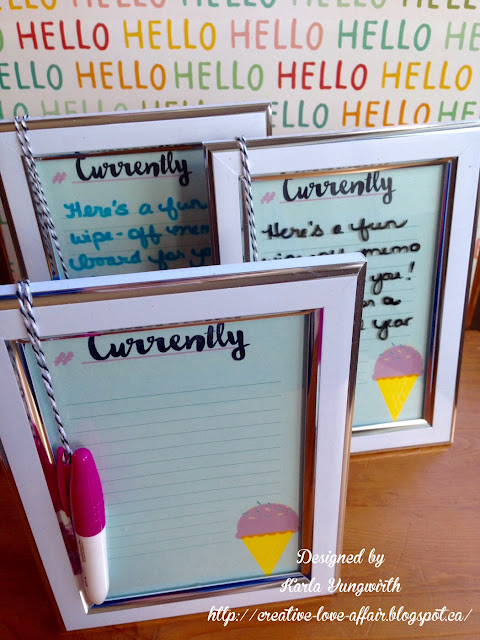 HELLO HELLO HELLO HELLO
HELLO HELLO HELLO HELLO HELLO
HELLO HELLO HELLO HELLO HELLO
HELLO HELLO HELLO
# Currently
Here's a fun
wipe-off memo
board for yo
# Currently
Here's a fun
wipe-off memo
you!
a
year
# Currently
Designed by
Karla Yungwirth
http://creative-love-affair.blogspot.ca/